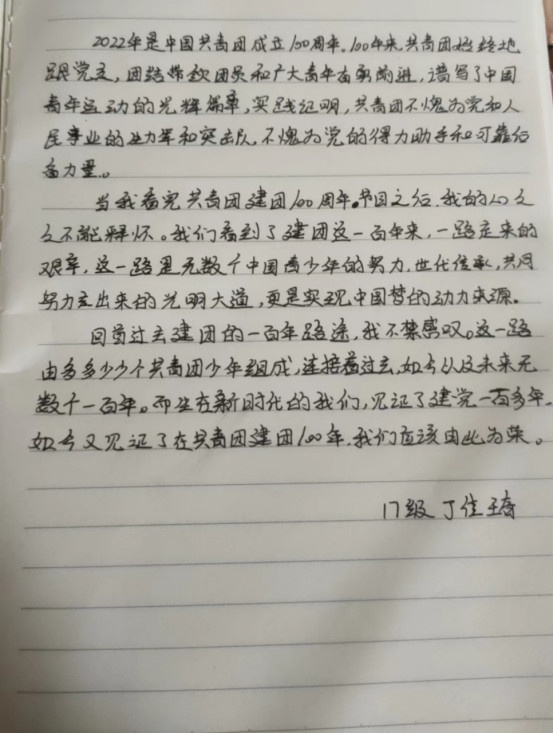 2022年是中国共青团成立100周年。100年来,共青团始终地
跟党走,团结带领团员和广大青年奋勇前进,谱写了中国
青年运动的光辉篇章,实践证明,共青团不愧为党和人
民事业的生力军和突击队,不愧为党的得力助手和可靠后
备力量。
当我看完共青团建团100周年节目之后,我的心久
久不能释怀。我们看到了建团这一百年来,一路走来的
艰辛,这一路是无数个中国青少年的努力,世代传承,共同
努力走出来的光明大道,更是实现中国梦的动力来源。
回首过去建团的一百年路途,我不禁感叹。这一路
由多多少少个共青团少年组成,连接着过去,如今以及未来无
数个一百年。而生在新时代的我们,见证了建党一百多年。
如今又见证了在共青团建团100年,我们应该由此为荣。
17级 丁佳琦